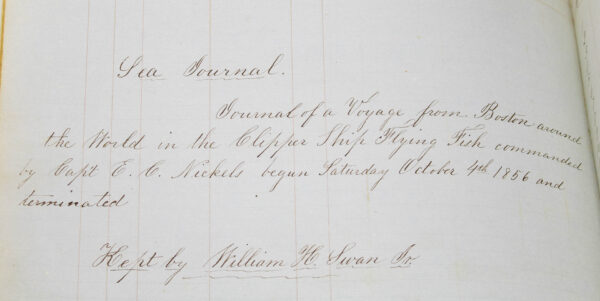 Sea Journal.
Journal of a Voyage from Boston around
the World in the Clipper Ship Flying Fish commanded
by Capt E. C. Nickels begun Saturday October 4th 1856 and
terminated
Kept by William H. Swan Jr.